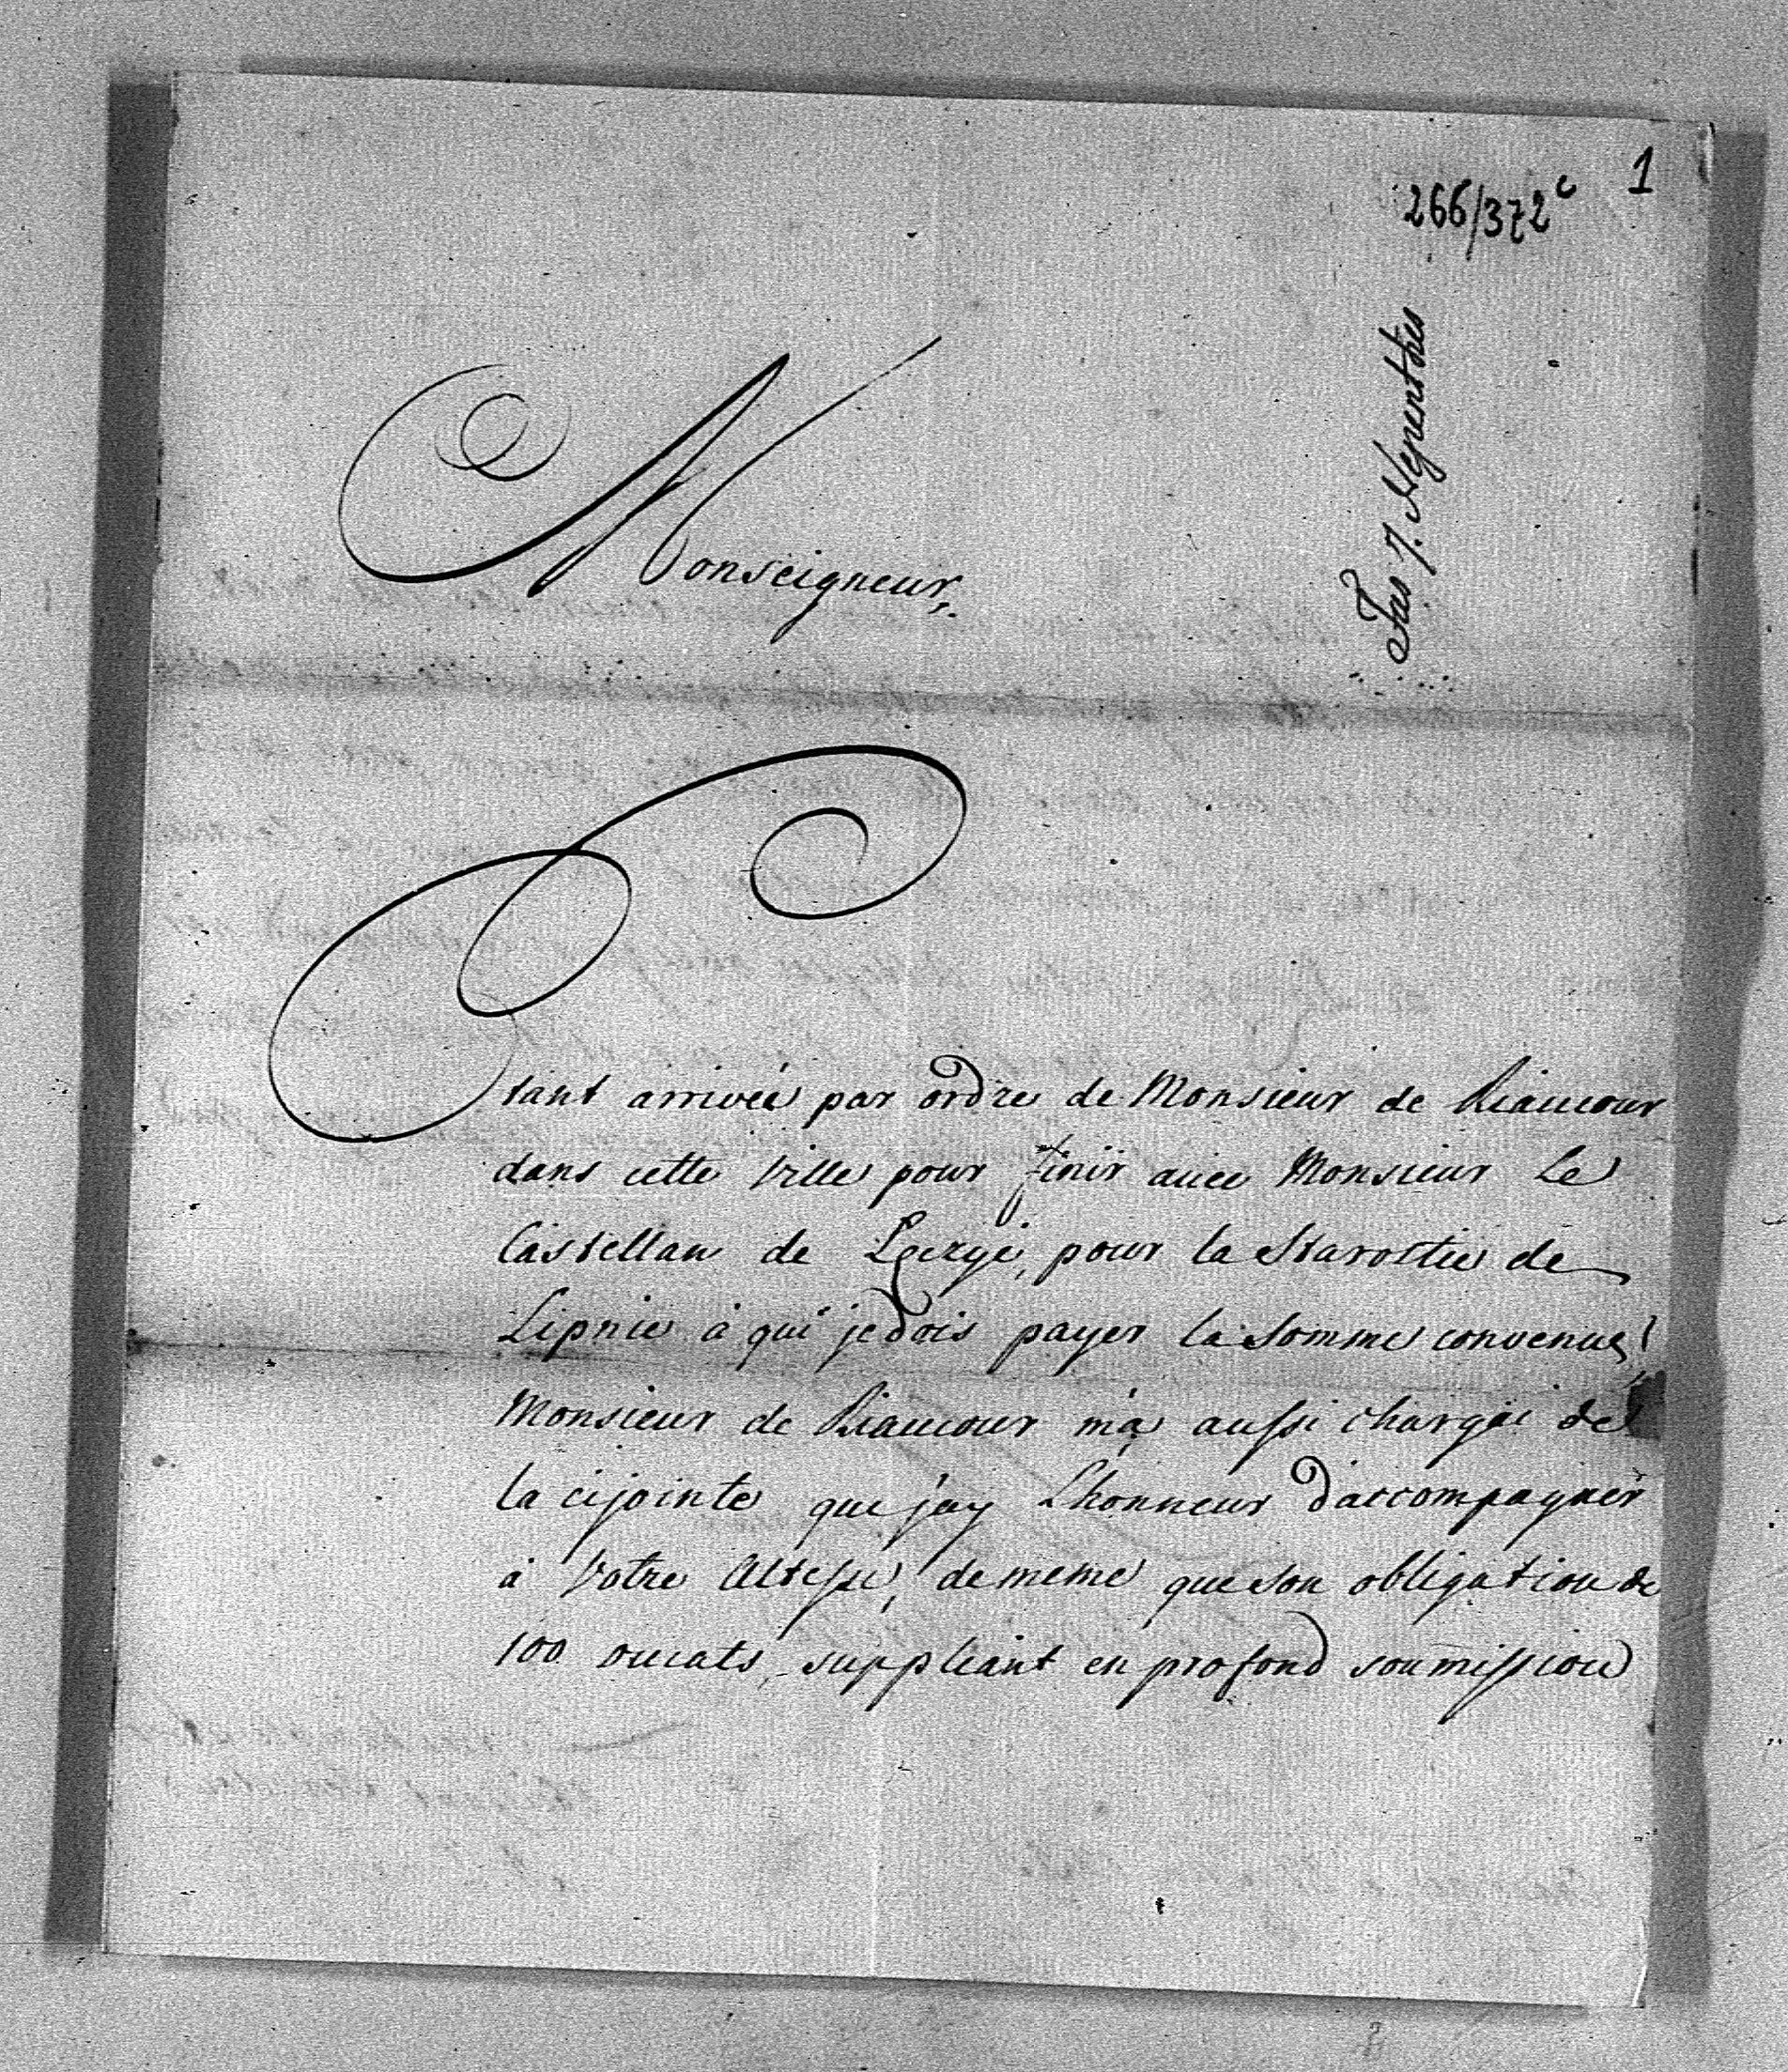 1
266/372 c
Monseigneur,
Etant arrivée par ordre de Monsieur de Riaucour
dans cette Ville pour finir avec Monsieur Le
Castellan de pour la Starostie de
Lipnie à qui je dois payer la somme convenue,
Monsieur de Riaucour m'a aussi chargé de
la cijointe que j'ay L'honneur d'accompagner
à Votre Altesse, de meme que son obligation de
100 ducats, suppliant en profond soumission